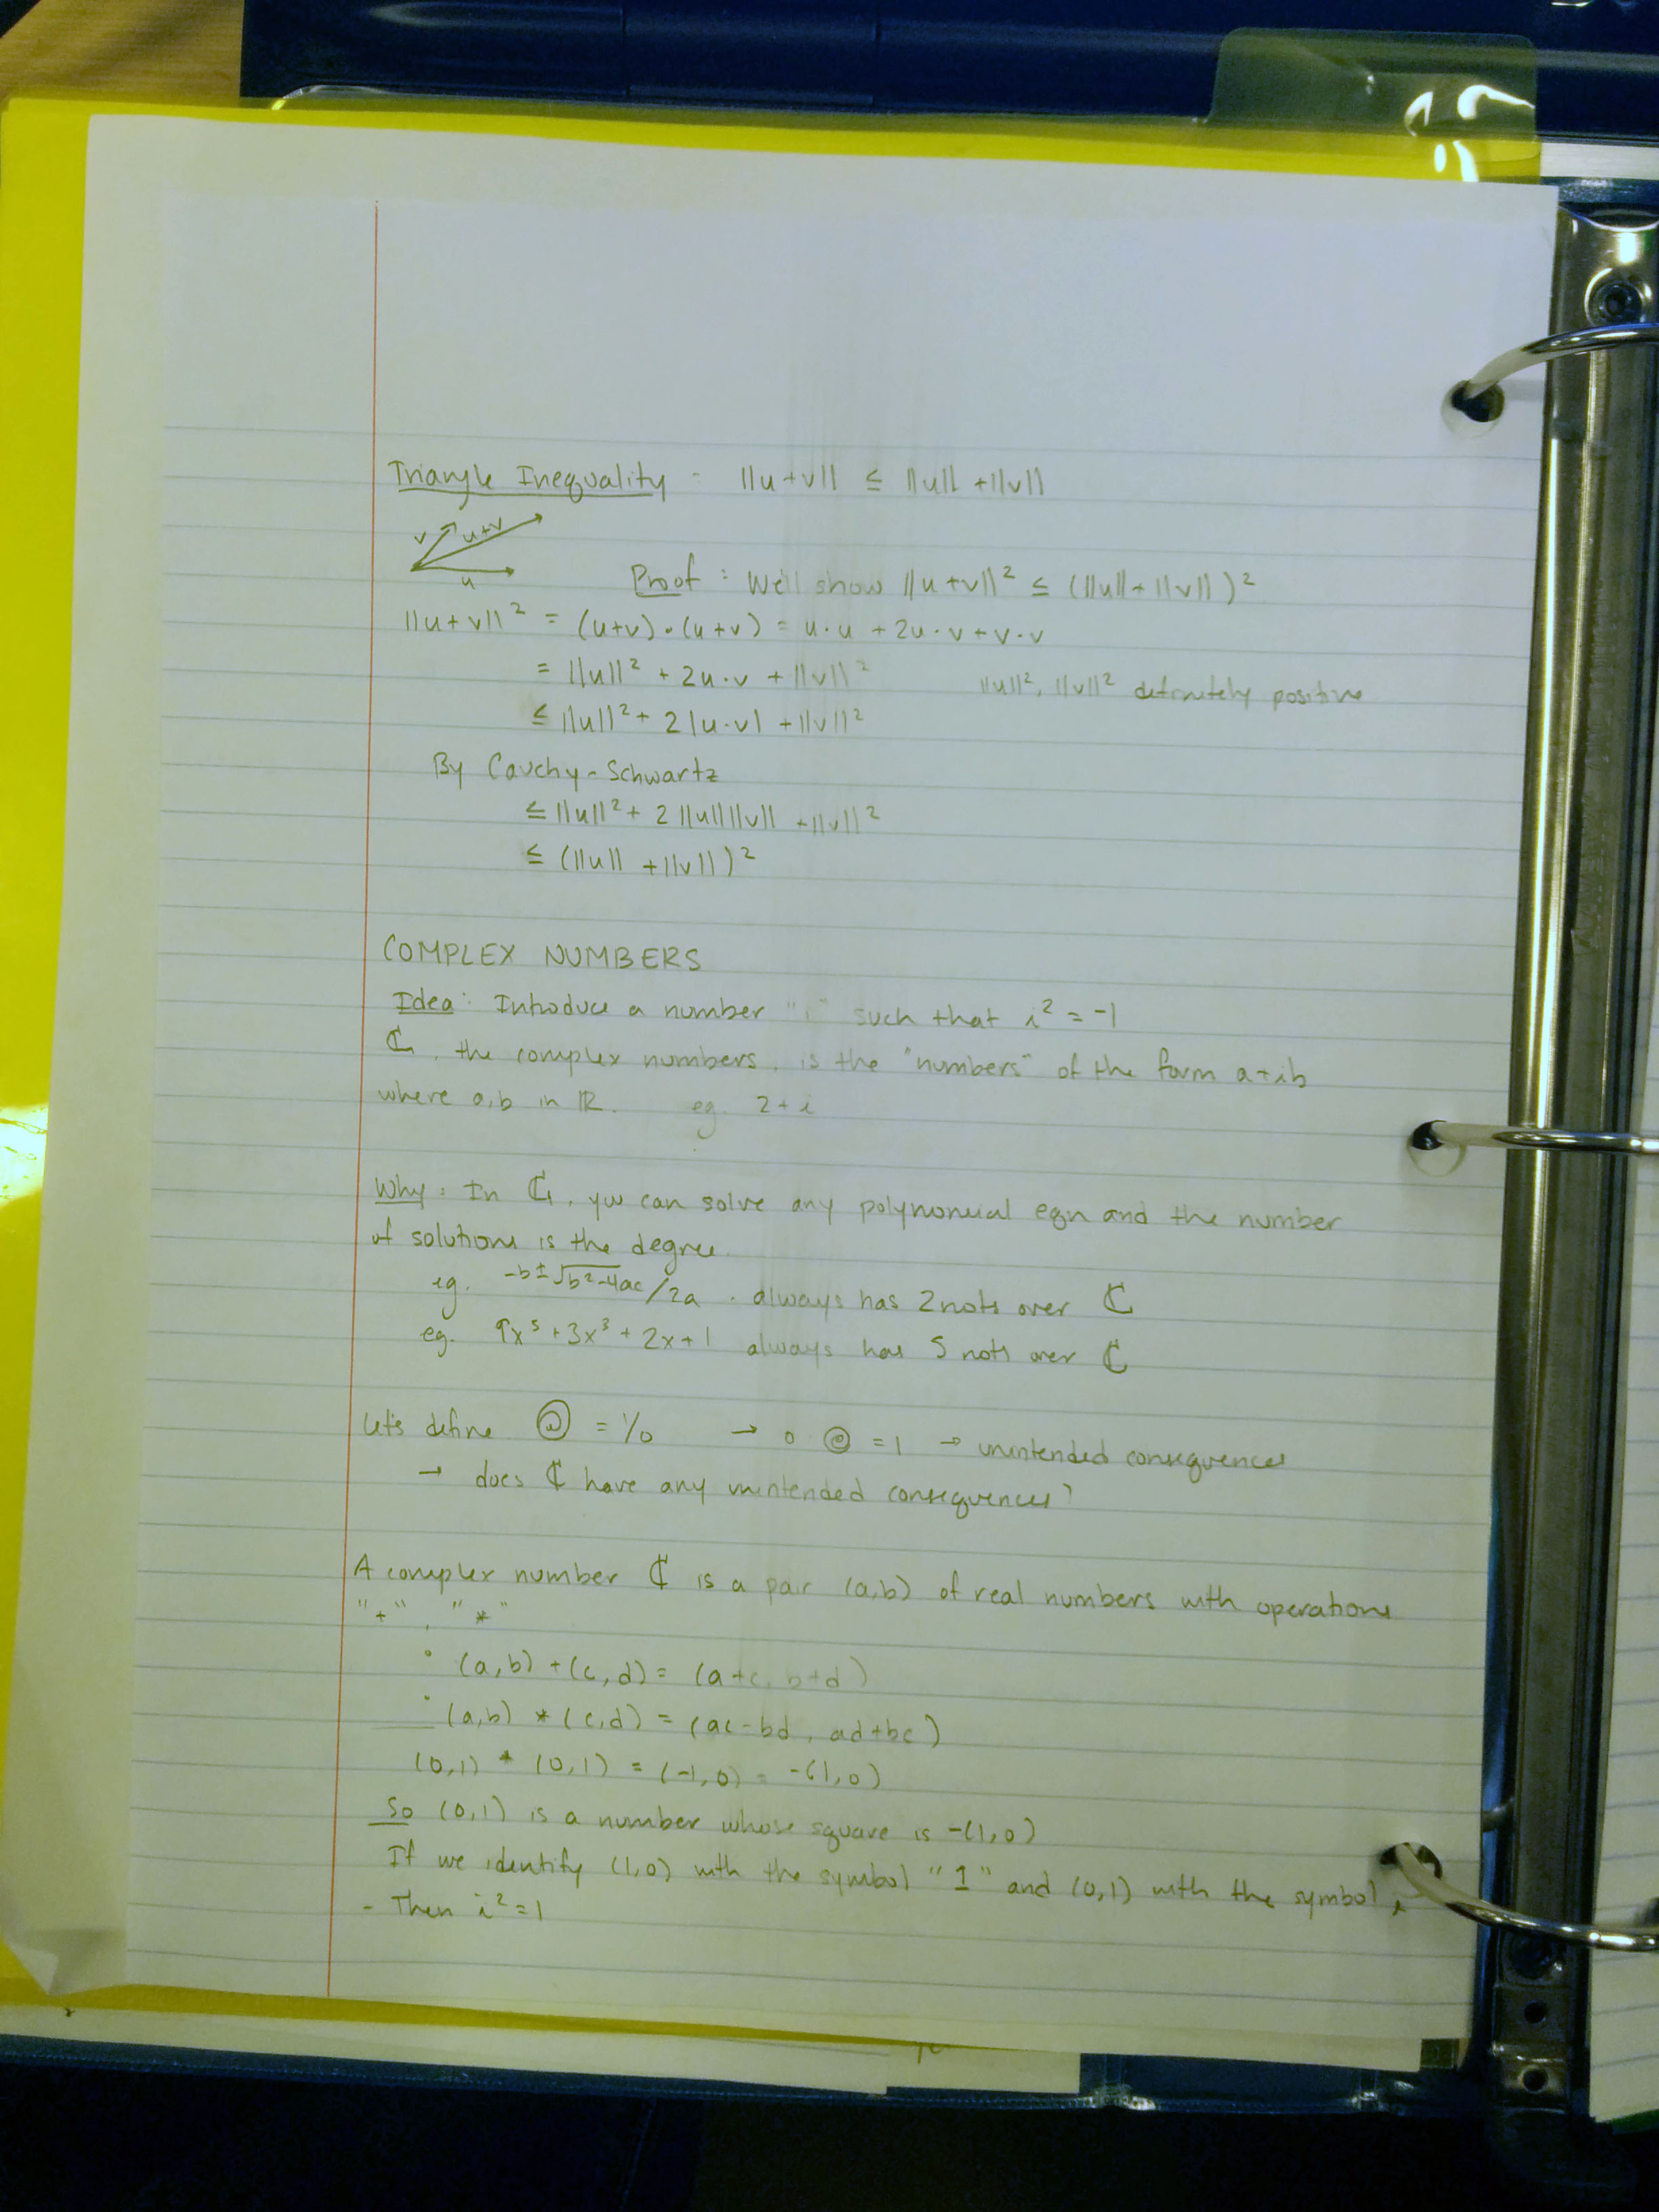 Triangle Inequality : ||u+v|| ≤ ||u|| + ||v||
v u+v
u
Proof : We'll show ||u+v||² ≤ (||u|| + ||v||)²
||u+v||² = (u+v)·(u+v) = u·u + 2u·v + v·v
= ||u||² + 2u·v + ||v||² ||u||², ||v||² definitely positive
≤ ||u||² + 2|u·v| + ||v||²
By Cauchy-Schwartz
≤ ||u||² + 2||u||||v|| + ||v||²
≤ (||u|| + ||v||)²
COMPLEX NUMBERS
Idea: Introduce a number "i" such that i² = -1
ℂ, the complex numbers, is the "numbers" of the form a+ib
where a,b in ℝ. eg. 2+i
Why: In ℂ, you can solve any polynomial eqn and the number
of solutions is the degree.
eg. -b±√b²-4ac/2a . always has 2 roots over ℂ
eg. 9x⁵ + 3x³ + 2x + 1 always has 5 roots over ℂ
Let's define @ = 1/0 → 0 @ = 1 → unintended consequences
→ does ℂ have any unintended consequences?
A complex number ℂ is a pair (a,b) of real numbers with operations
"+", "*"
• (a,b) + (c,d) = (a+c, b+d)
• (a,b) * (c,d) = (ac-bd, ad+bc)
(0,1) * (0,1) = (-1,0) = -(1,0)
So (0,1) is a number whose square is -(1,0)
If we identify (1,0) with the symbol "1" and (0,1) with the symbol i
- Then i² = 1